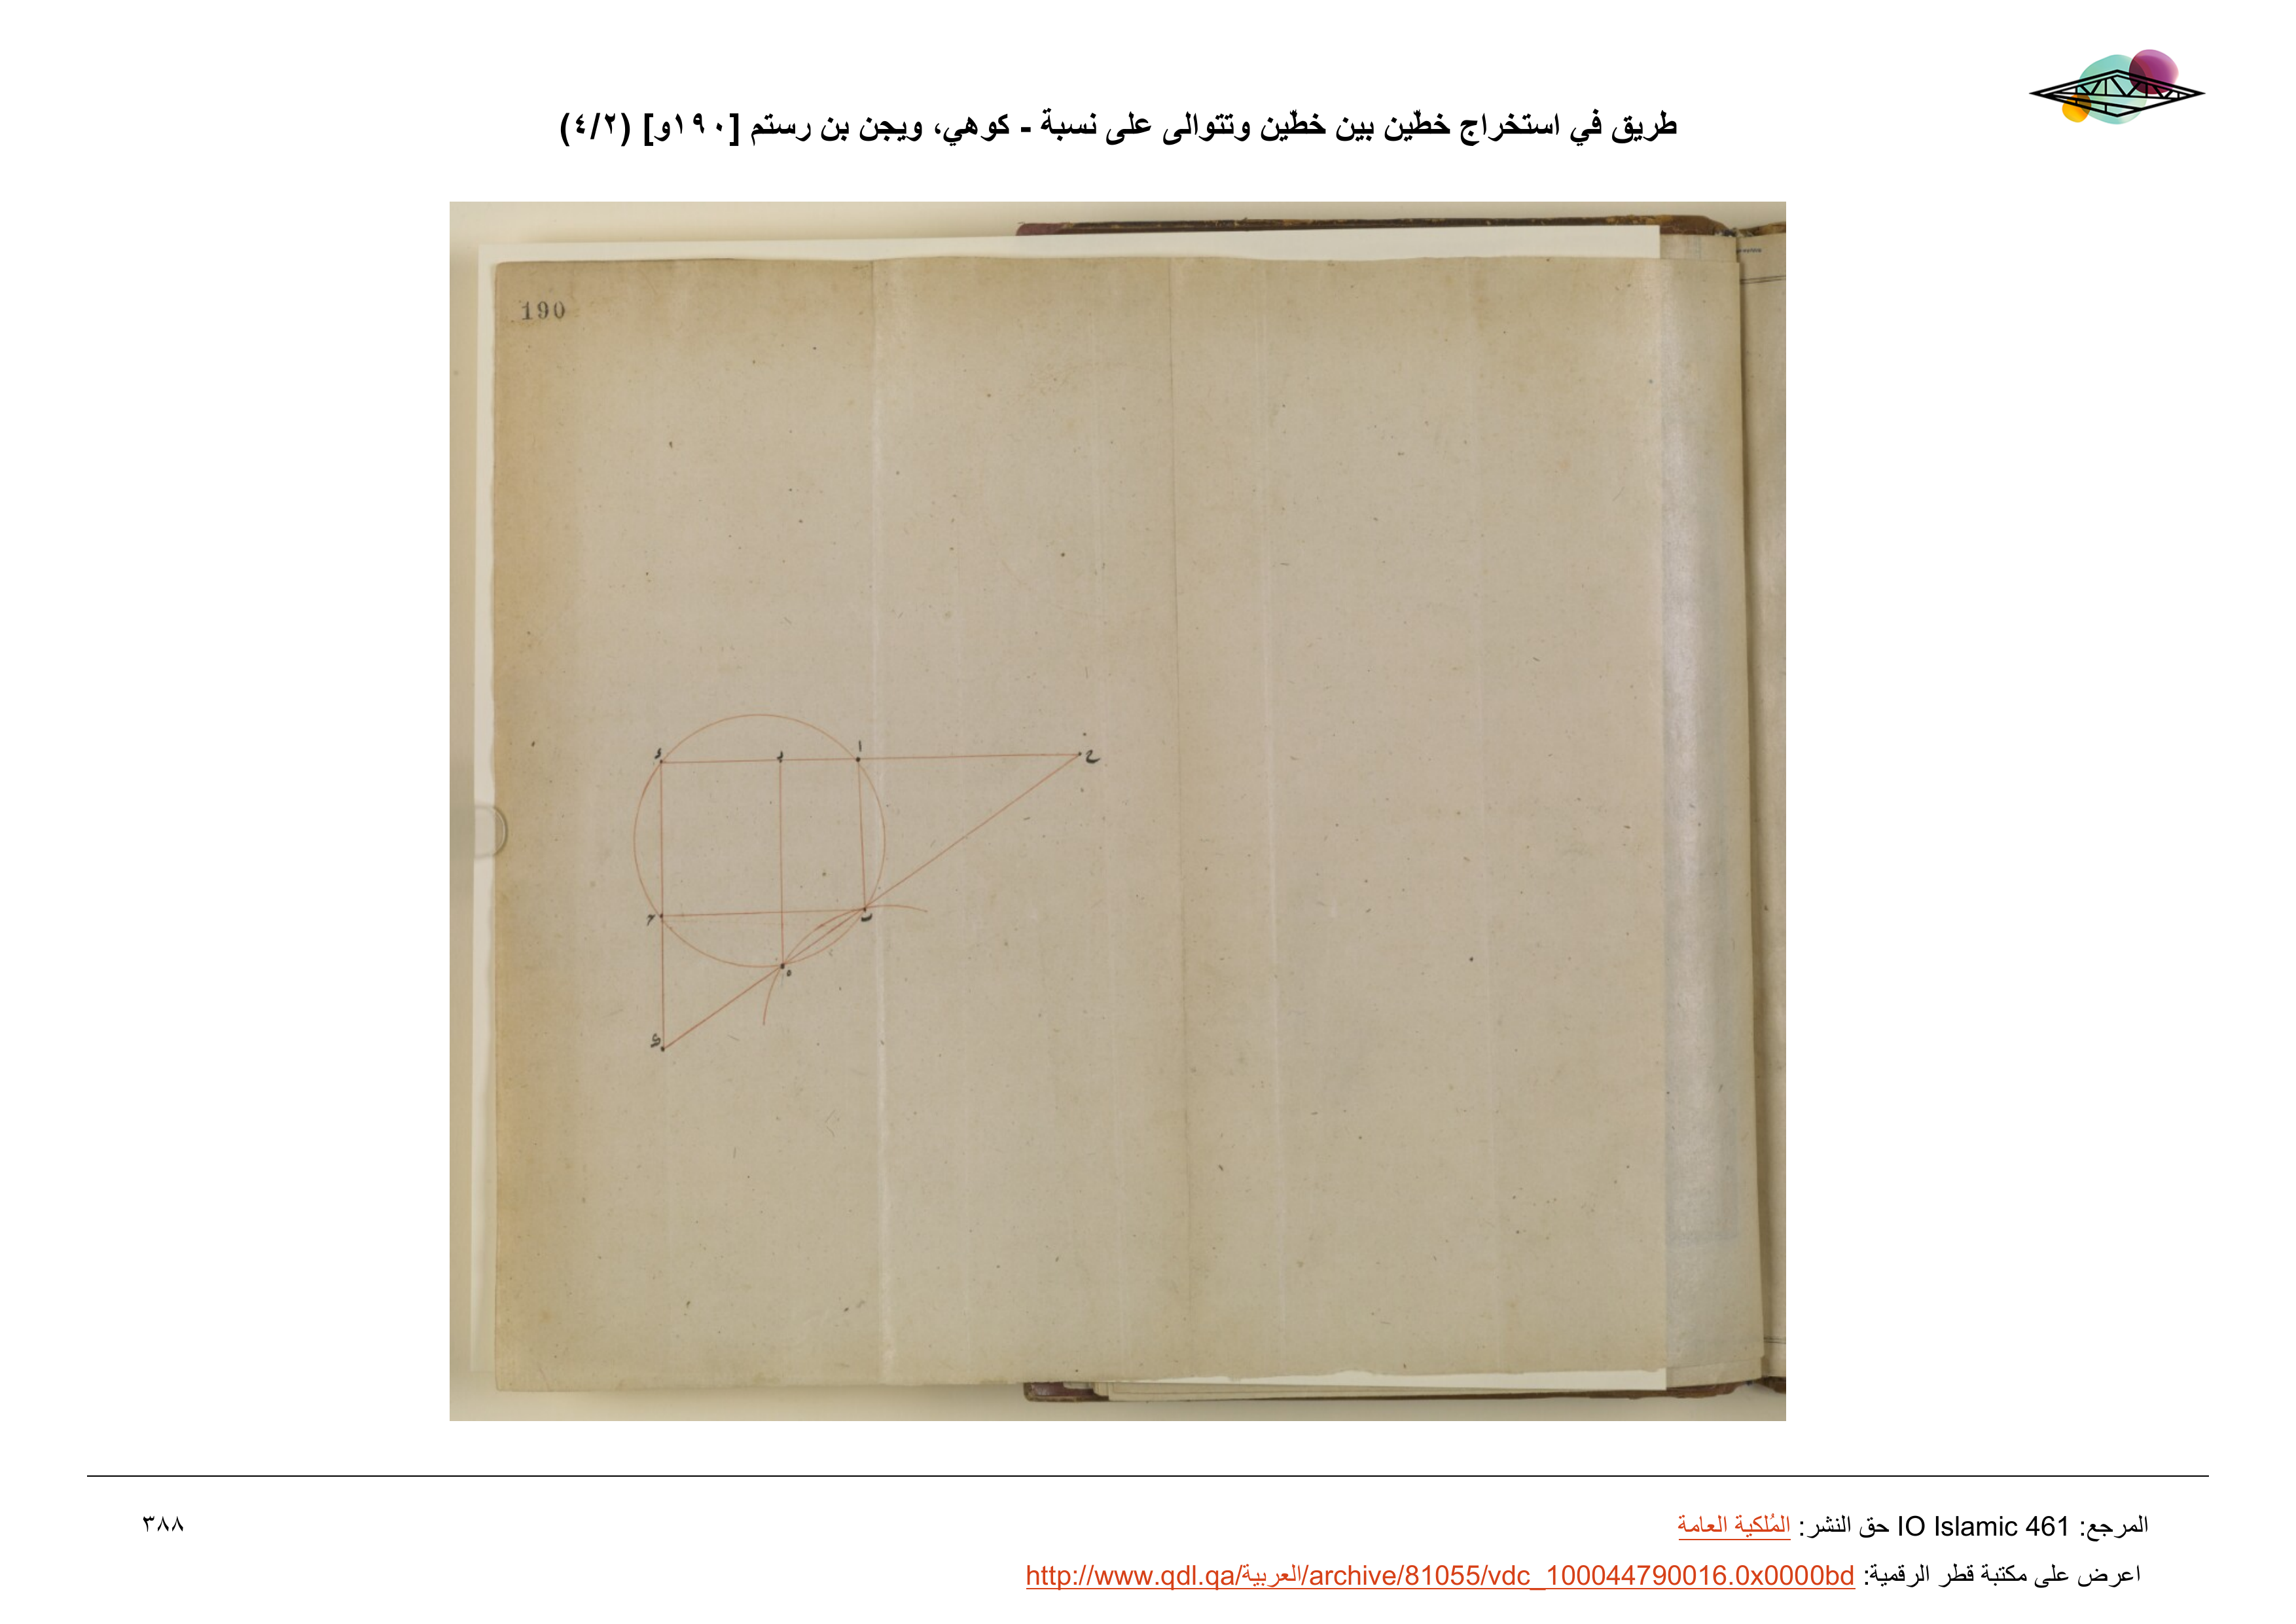 طريق في استخراج خطّين بين خطّين وتتوالى على نسبة - كوهي، ويجن بن رستم [١٩٠و] (٤/٢)
190
ا
ح
ب
ه
المرجع: IO Islamic 461 حق النشر: المُلكية العامة
٣٨٨
اعرض على مكتبة قطر الرقمية: http://www.qdl.qa/العربية/archive/81055/vdc_100044790016.0x0000bd